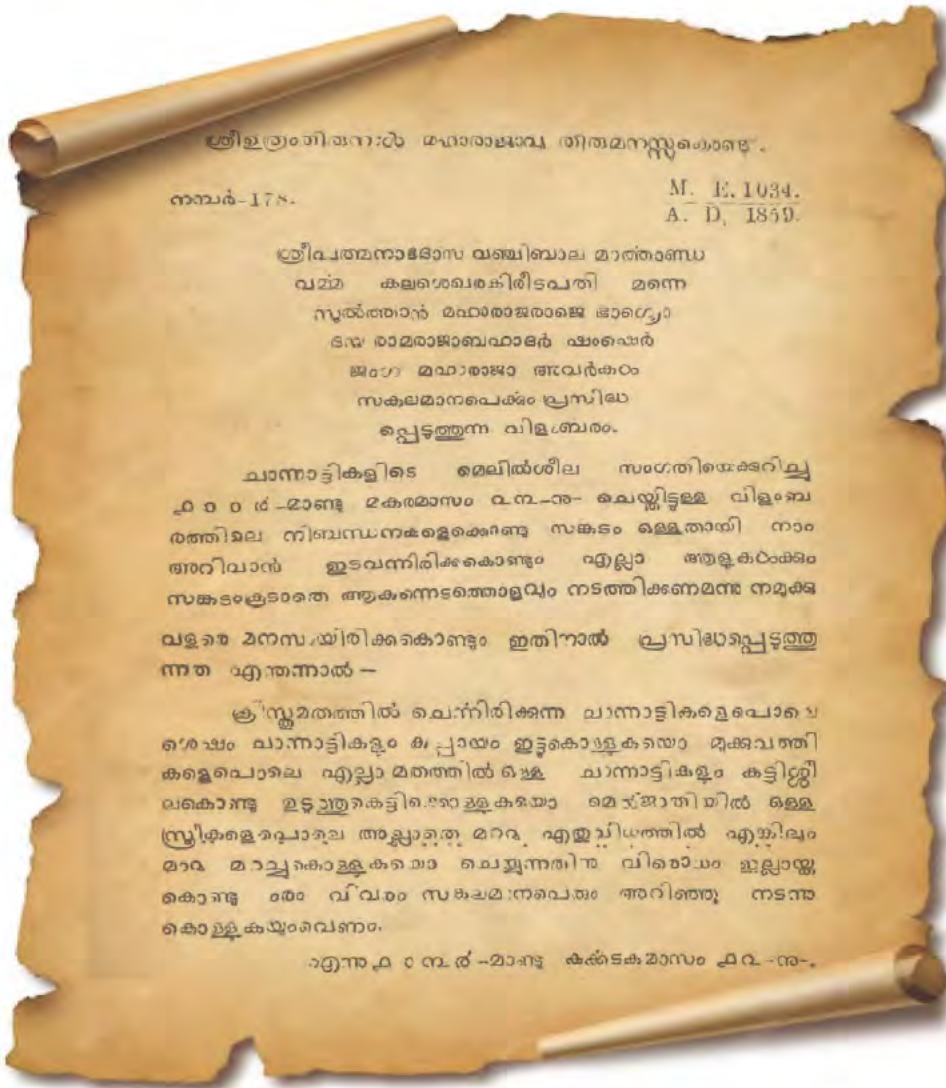 ശ്രീഉത്രംതിരുനാൾ മഹാരാജാവു തിരുമനസ്സുകൊണ്ടു.
നമ്പർ-178.
M. E. 1034.
A. D. 1859.
ശ്രീപത്മനാഭദാസ വഞ്ചിബാല മാർത്താണ്ഡ
വർമ്മ കുലശെഖരകിരീടപതി മന്നെ
സുൽത്താൻ മഹാരാജരാജെ ഭാഗ്യൊ
ദയ രാമരാജാബഹാദർ ഷംഷെർ
ജംഗ മഹാരാജാ അവർകൾ
സകലമാനപെർക്കും പ്രസിദ്ധ
പ്പെടുത്തുന്ന വിളംബരം.
ചാന്നാട്ടികളിടെ മെലിൽശീല സംഗതിയെക്കുറിച്ചു
൧൦൦൪-മാണ്ടു മകരമാസം ൨൩-നു- ചെയ്തിട്ടുള്ള വിളംബ
രത്തിലെ നിബന്ധനകളെക്കൊണ്ടു സങ്കടം ഒള്ളതായി നാം
അറിവാൻ ഇടവന്നിരിക്കകൊണ്ടും എല്ലാ ആളുകൾക്കും
സങ്കടംകൂടാതെ ആകുന്നെടത്തൊളവും നടത്തിക്കണമെന്നു നമുക്കു
വളരെ മനസ്സായിരിക്കകൊണ്ടും ഇതിനാൽ പ്രസിദ്ധപ്പെടുത്തു
ന്നത എന്തെന്നാൽ –
ക്രിസ്തുമതത്തിൽ ചെർന്നിരിക്കുന്ന ചാന്നാട്ടികളെപൊലെ
ശെഷം ചാന്നാട്ടികളും കുപ്പായം ഇട്ടുകൊള്ളുകയൊ മുക്കുവത്തി
കളെപൊലെ എല്ലാ മതത്തിൽ ഒള്ള ചാന്നാട്ടികളും കട്ടിശ്ശീ
ലകൊണ്ടു ഉടുത്തുകെട്ടിക്കൊള്ളുകയൊ മെൽജാതിയിൽ ഒള്ള
സ്ത്രീകളെപൊലെ അല്ലാതെ മററു എതുവിധത്തിൽ എങ്കിലും
മാറു മറച്ചുകൊള്ളുകയൊ ചെയ്യുന്നതിനു വിരൊധം ഇല്ലായ്ക
കൊണ്ടു ൟ വിവരം സകലമാനപെരും അറിഞ്ഞു നടന്നു
കൊള്ളുകയുംവെണം.
എന്നു ൧൦൩൪-മാണ്ടു കർക്കടകമാസം ൧൨-നു-.